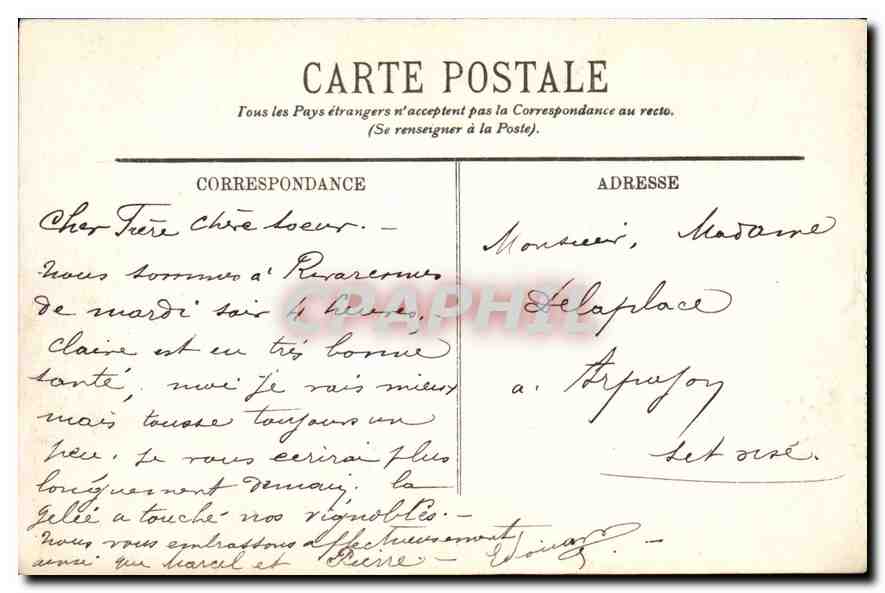 CARTE POSTALE
Tous les Pays étrangers n'acceptent pas la Correspondance au recto.
(Se renseigner à la Poste).
CORRESPONDANCE
Cher Frère chère soeur. —
nous sommes a Rivarennes
de mardi soir 4 heures. —
Claire est en très bonne
santé, moi je vais mieux
mais tousse toujours un
peu. je vous ecrirai plus
longuement demain. la
gelée a touché nos vignobles. —
nous vous embrassons affectueusement
ainsi que Marcel et Pierre — Edouard —
ADRESSE
Monsieur, Madame
Delaplace
a. Arpajon
Set oisé.
CPAPHIL